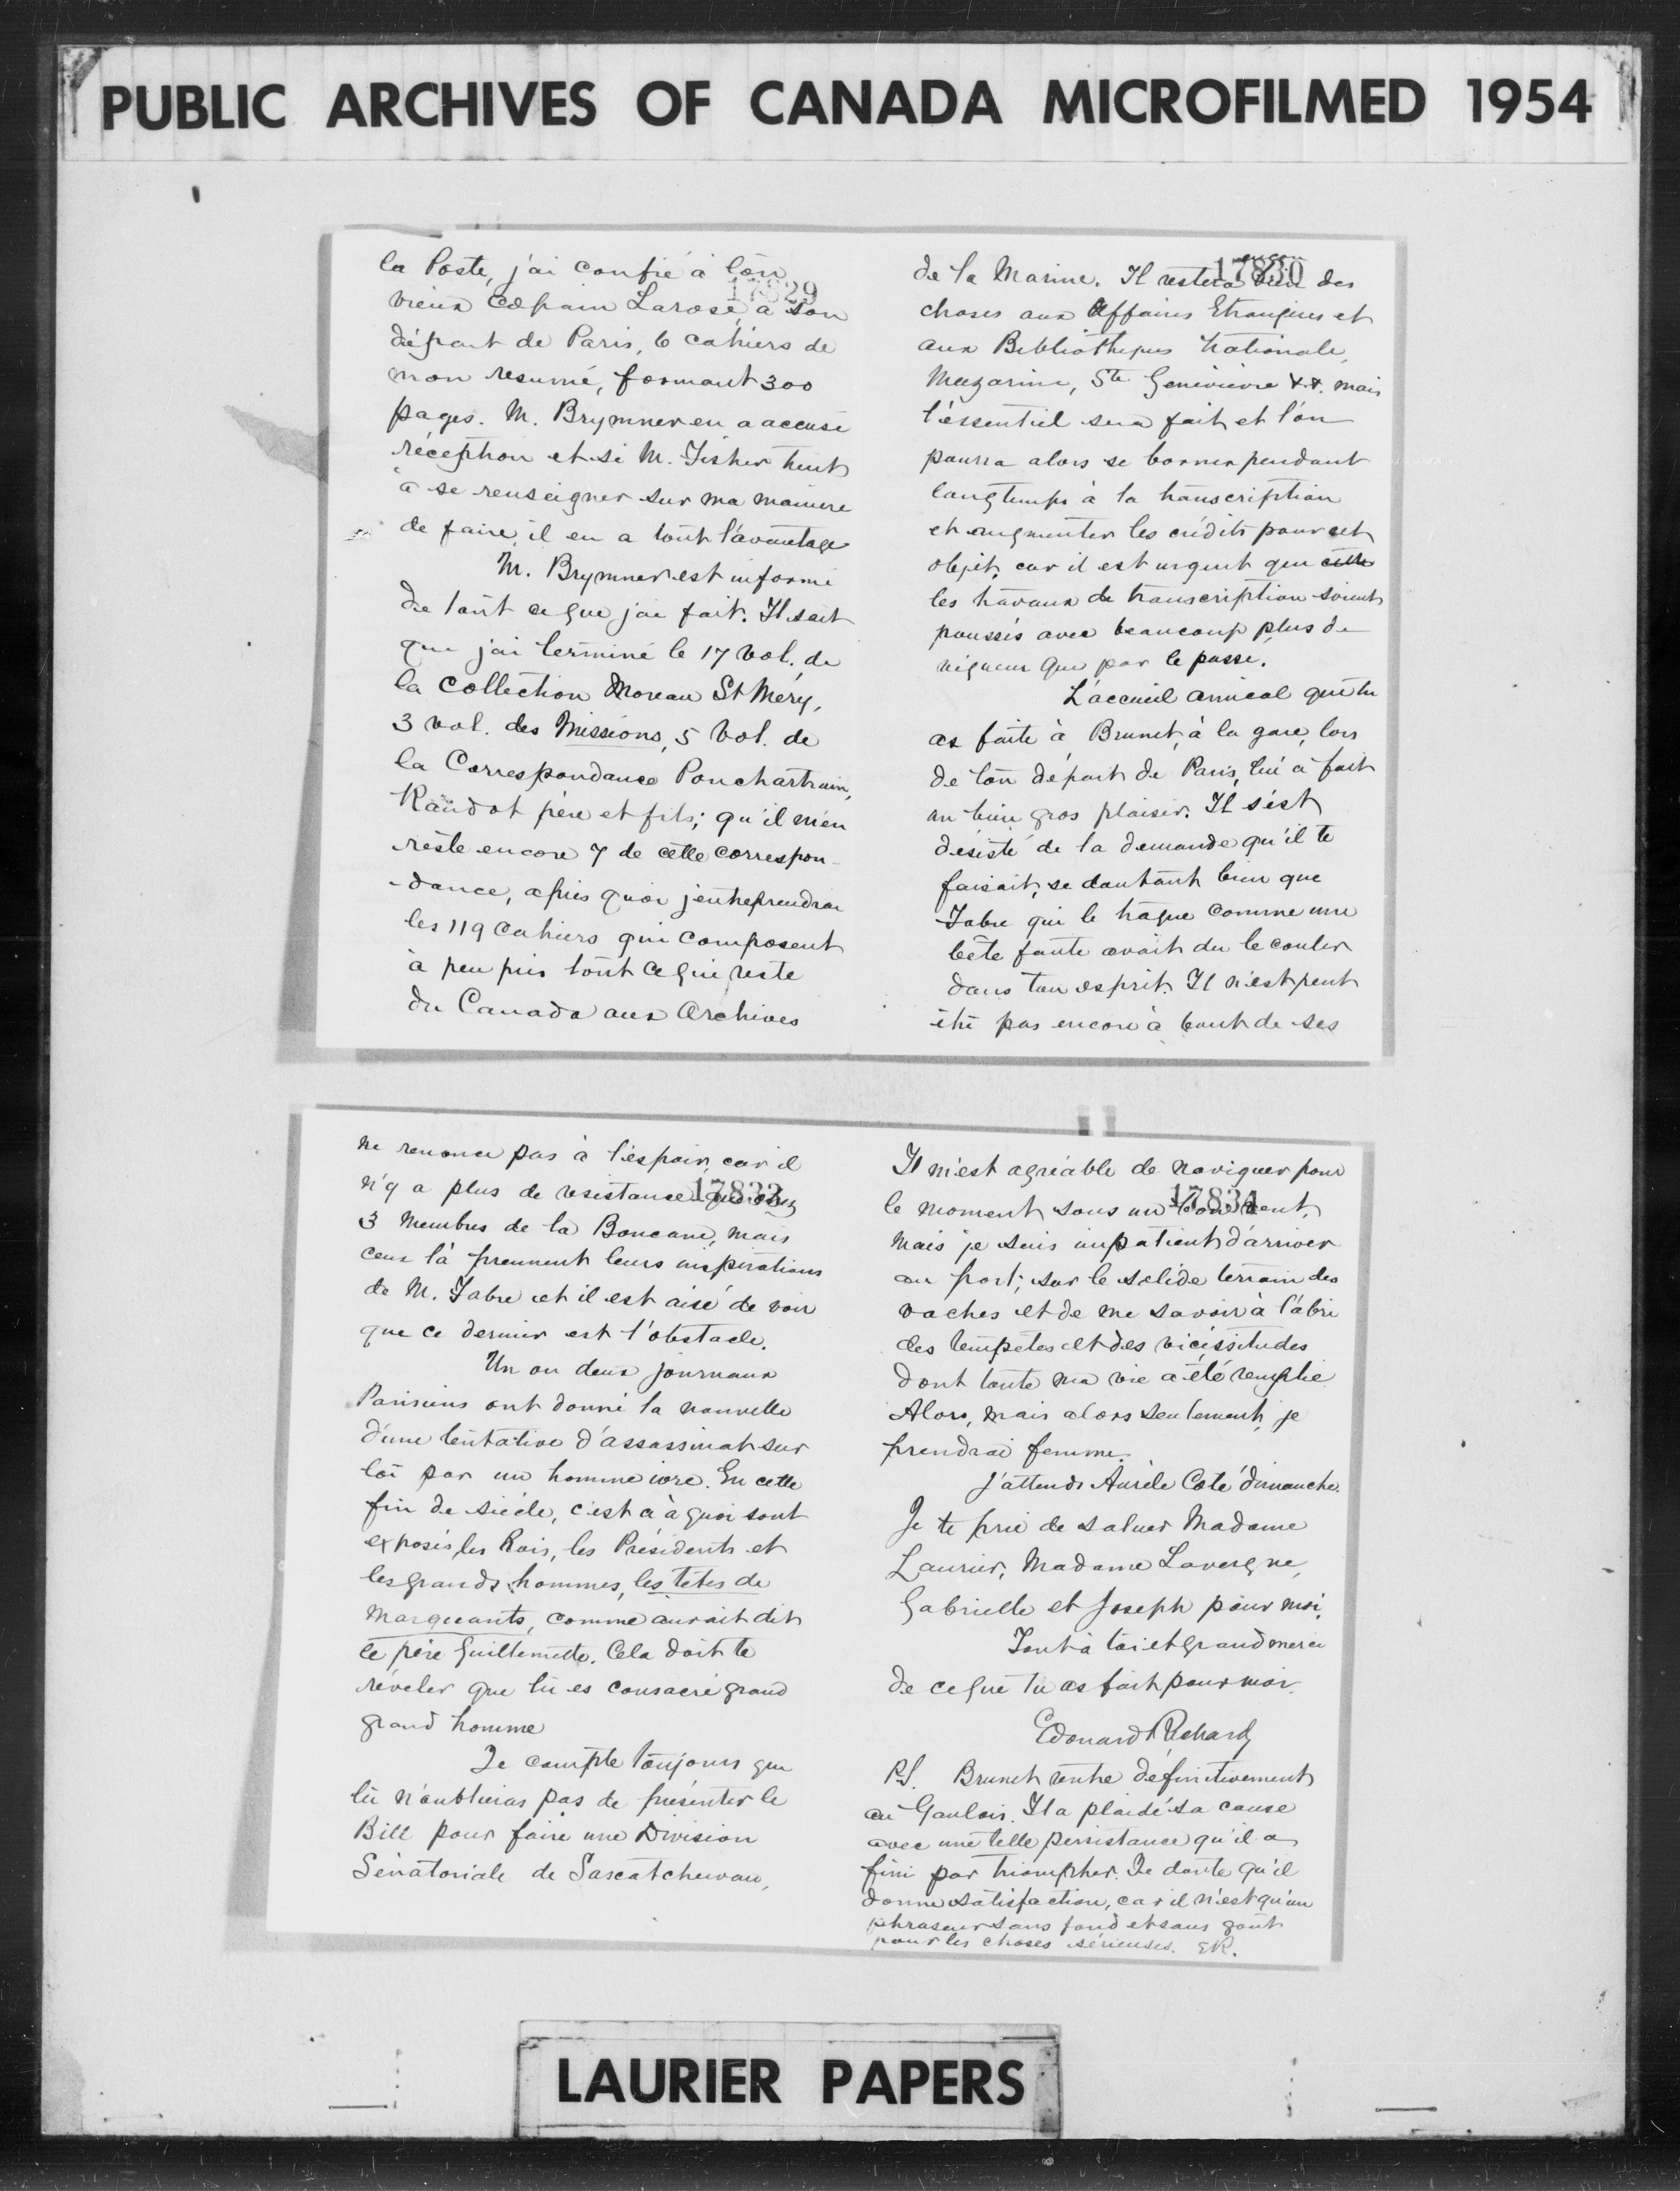 PUBLIC ARCHIVES OF CANADA MICROFILMED 1954
17829
la Poste, j'ai confié à ton
vieux copain Larose, a son
départ de Paris, 6 cahiers de
mon resumé, formant 300
pages. M. Brymner en a accusé
réception et si M. Fisher tient
à se renseigner sur ma manière
de faire, il en a tout l'avantage
M. Brymner est informé
de tout ce que j'ai fait. Il sait
que j'ai terminé le 17 vol. de
la Collection Moreau St Méry,
3 vol. des Missions, 5 Vol. de
la Correspondance Ponchartrain,
Raudot père et fils; qu'il m'en
reste encore 7 de cette correspon-
-dance, après quoi j'entreprendrai
les 119 Cahiers qui composent
à peu près tout ce qui reste
du Canada aux Archives
17830
de la Marine. Il restera bien des
choses aux Affaires Etrangères et
aux Bibliothèques Nationale,
Mazarine, Ste Geneviève &&. mais
l'essentiel sera fait et l'on
pourra alors se borner pendant
longtemps à la transcription
et augmenter les crédits pour cet
objet, car il est urgent que cette
les travaux de transcription soient
poussés avec beaucoup plus de
vigueur que par le passé.
L'accueil amical que tu
as faite à Brunet, à la gare, lors
de ton départ de Paris, lui a fait
un bien gros plaisir. Il s'est
désisté de la demande qu'il te
faisait, se doutant bien que
Fabre qui le traque comme une
bête fauve avait du le couler
dans ton esprit. Il n'est peut
être pas encore à bout de ses
17832
ne renonce pas à l'espoir, car il
n'y a plus de resistance que chez
3 Membres de la Boucane, mais
ceux là prennent leurs inspirations
de M. Fabre et il est aisé de voir
que ce dernier est l'obstacle.
Un ou deux journaux
Parisiens ont donné la nouvelle
d'une tentative d'assassinat sur
toi par un homme ivre. En cette
fin de siècle, c'est ce à quoi sont
exposés les Rois, les Présidents et
les grands hommes, les têtes de
marquants, comme aurait dit
le père Guillemette. Cela doit te
révéler que tu es consacré grand
grand homme
Je compte toujours que
tu n'oublieras pas de présenter le
Bill pour faire une Division
Sénatoriale de Sascatchewan,
17831
Il m'est agréable de naviguer pour
le moment sous un bon vent,
mais je suis impatient d'arriver
au port; sur le solide terrain des
vaches et de me savoir à l'abri
des tempêtes et des vicissitudes
dont toute ma vie a été remplie.
Alors, mais alors seulement, je
prendrai femme.
J'attends Aurèle Coté dimanche.
Je te prie de saluer Madame
Laurier, Madame Lavergne,
Gabrielle et Joseph pour moi.
Tout à toi et grand merci
de ce que tu as fait pour moi.
Edouard Richard
P.S. Brunet rentre définitivement
au Gaulois. Il a plaidé sa cause
avec une telle persistance qu'il a
fini par triompher. Je doute qu'il
donne satisfaction, car il n'est qu'un
phraseur sans fond et sans goût
pour les choses sérieuses. ER.
LAURIER PAPERS